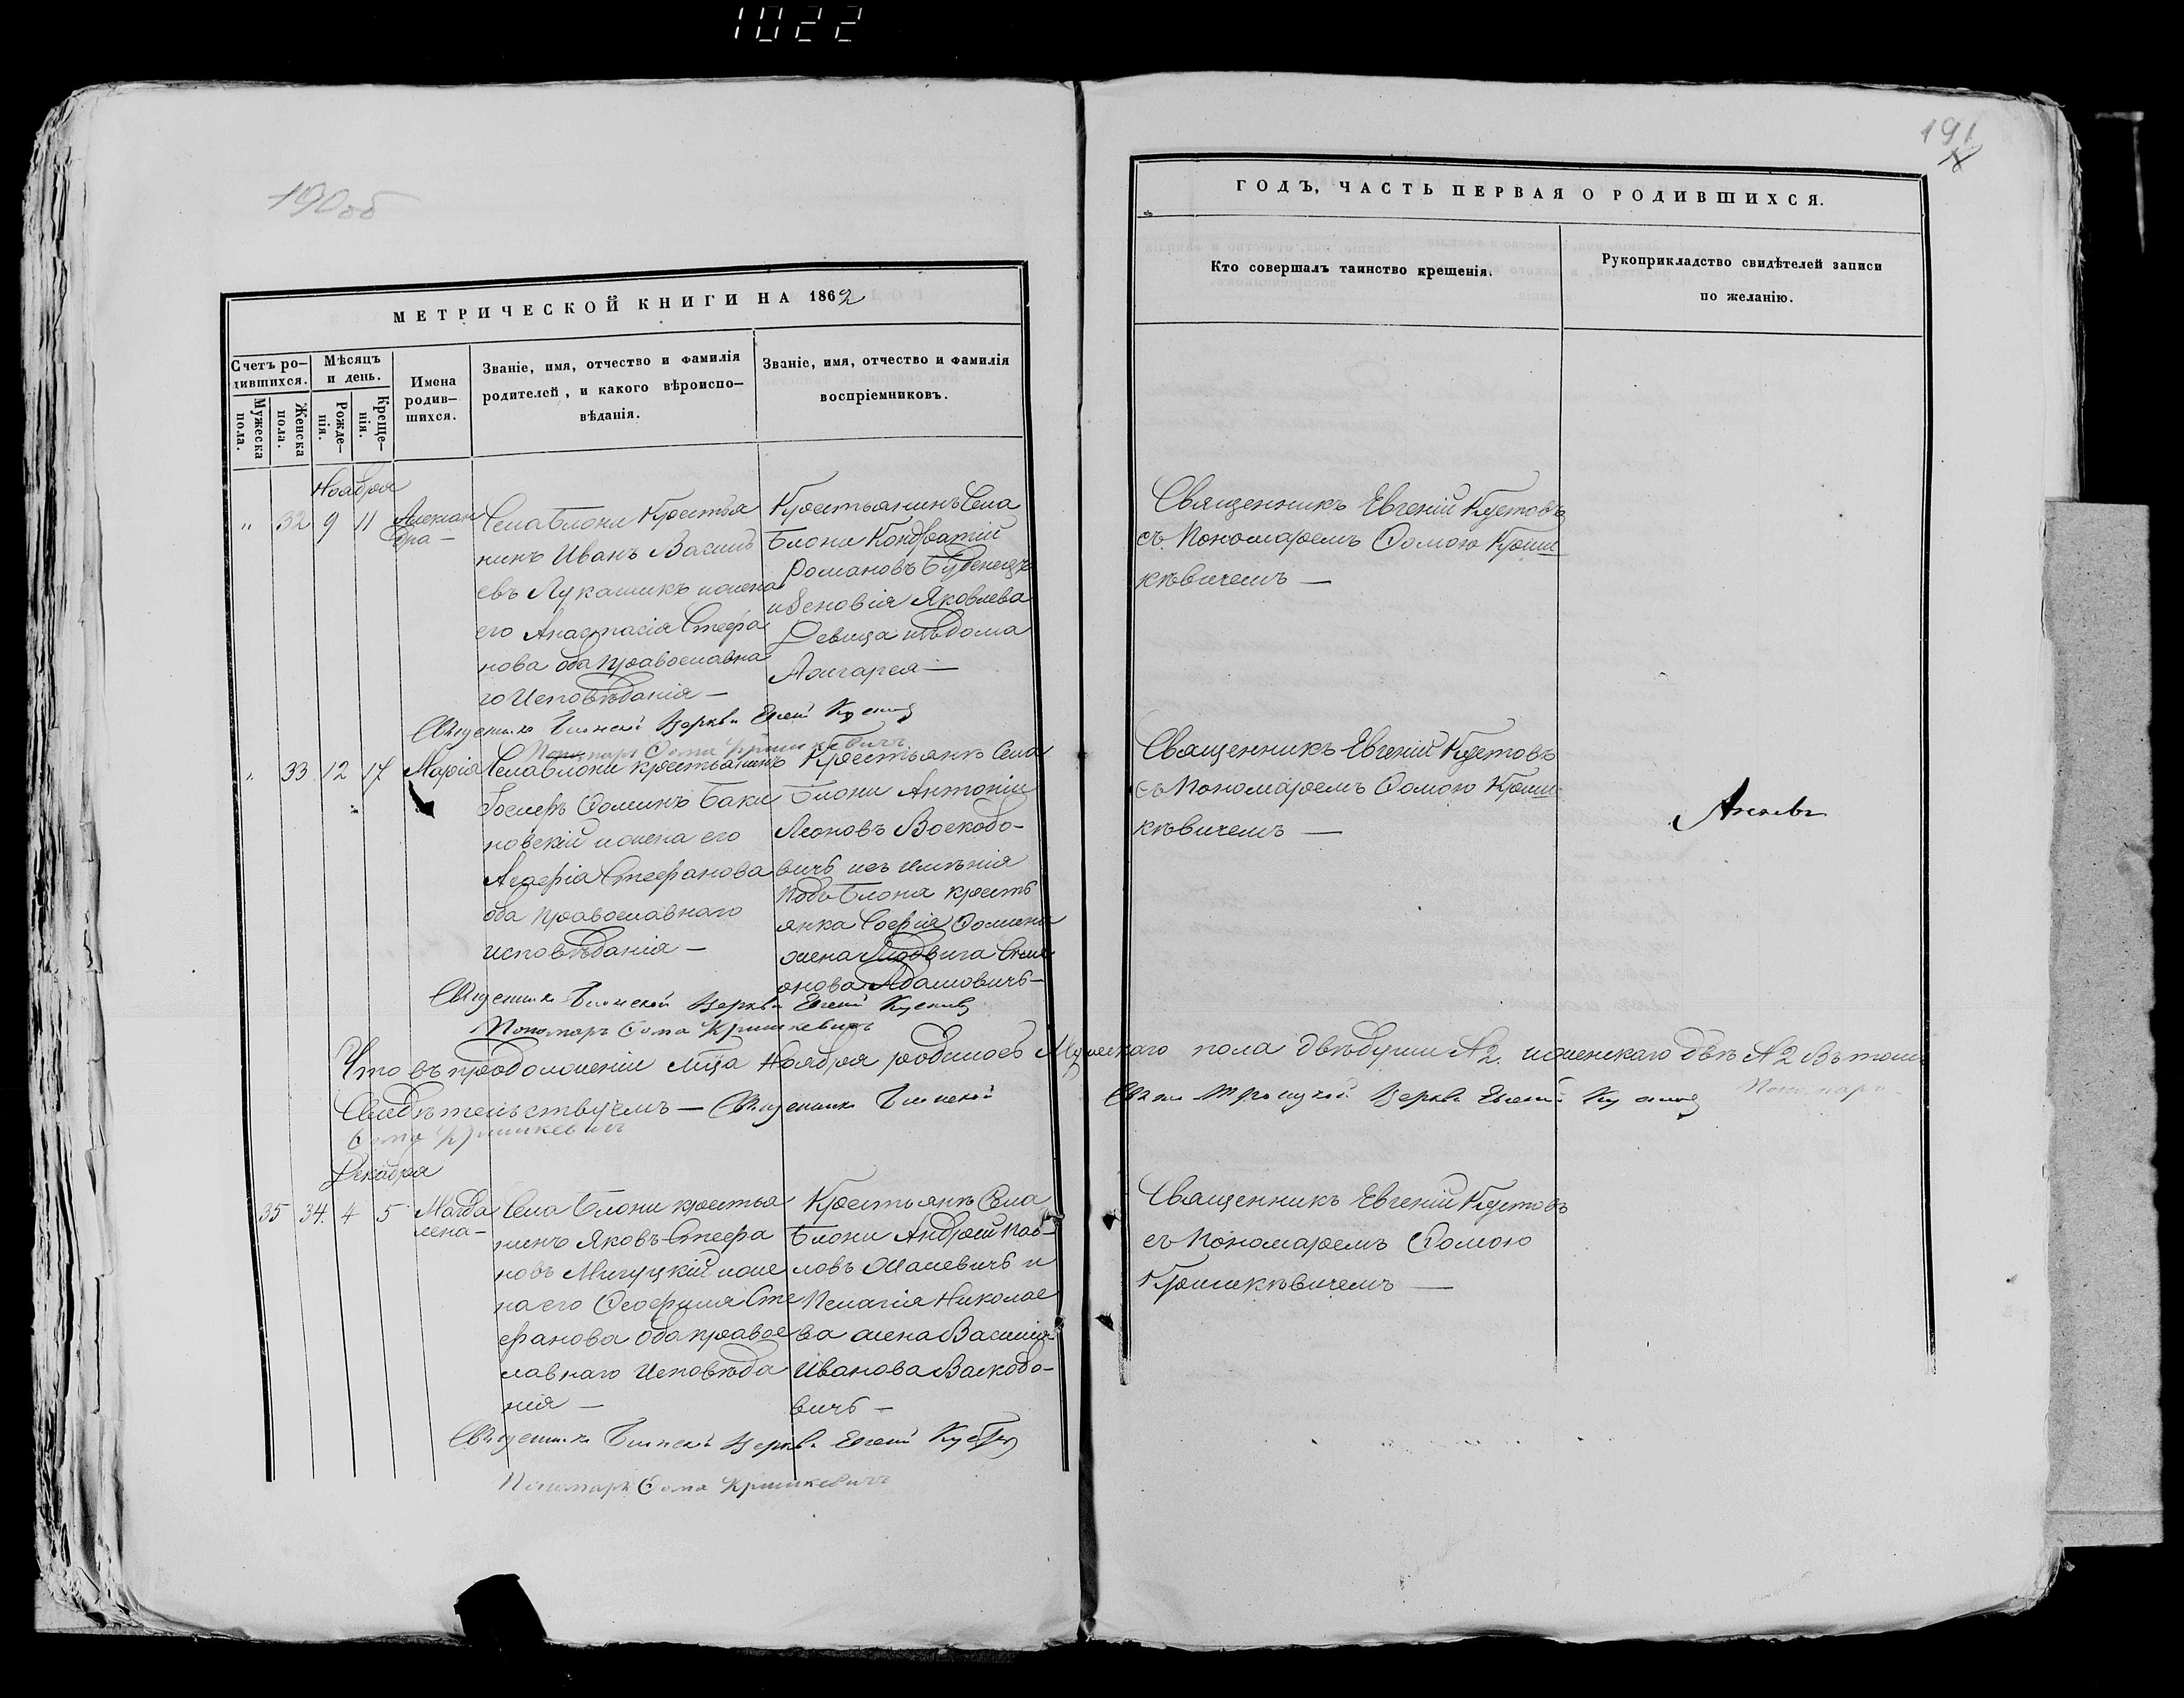 1022
190об
191
МЕТРИЧЕСКОЙ КНИГИ НА 1862
ГОДЪ, ЧАСТЬ ПЕРВАЯ О РОДИВШИХСЯ.
Счетъ ро-
дившихся.
Мужеска
пола.
Женска
пола.
Мѣсяцъ
и день.
Рожде-
нія.
Креще-
нія.
Имена
родив-
шихся.
Званіе, имя, отчество и фамилія
родителей, и какого вѣроиспо-
вѣданія.
Званіе, имя, отчество и фамилія
воспріемниковъ.
Кто совершалъ таинство крещенія.
Рукоприкладство свидѣтелей записи
по желанію.
Ноября
" 32 9 11
Алексан
дра —
Села Блони Крестья
нинъ Иванъ Василь
евъ Лукашикъ и жена
его Анастасія Стефа
нова оба Православна
го Исповѣданія —
Крестьянинъ Села
Блони Кондратій
Романовъ
и Зеновія Яковлева
Девица
Священникъ Евгеній Кустовъ
съ Пономаремъ Ѳомою Криш
кѣвичемъ —
Священникъ Блонской Церкви Евгений Кустовъ
Пономарь Ѳома Кришкевичъ
" 33 12 17
Марія
Села Блони крестьянинъ
Іосифъ Ѳоминъ Баки
новскій и жена его
Агафія Стефанова
оба Православнаго
исповѣданія —
Крестьянъ Села
Блони Антоній
Леоновъ Воскобо-
вичъ изъ имѣнія
Подъ Блона кресть
янка Софія Ѳомина
жена Людвига Сим
онова Адамовичъ —
Священникъ Евгеній Кустовъ
съ Пономаремъ Ѳомою Криш
кѣвичемъ —
Священникъ Блонской Церкви Евгений Кустовъ
Пономарь Ѳома Кришкевичъ
Что въ продолженіи мца Ноября родилось Мужескаго пола двѣ души №2. и женскаго двѣ №2 Въ томъ
Свидѣтельствуемъ — Священникъ Блонской Свято Троицкой Церкви Евгений Кустовъ Пономарь
Ѳома Кришкевичъ
Декабря
35 34. 4 5
Магда
лена —
Села Блони крестья
нинъ Яковъ Стефа
новъ Мигуцкій и же
на его Ѳеофилія Сте
фанова оба правос
лавнаго Исповѣда
нія —
Крестьянъ Села
Блони Андрей Пав-
ловъ Малевичъ и
Пелагія Николае
ва жена Василія
Иванова Васкобо-
вичъ —
Священникъ Евгеній Кустовъ
съ Пономаремъ Ѳомою
Кришкѣвичемъ —
Священникъ Блонской Церкви Евгений Кустовъ
Пономарь Ѳома Кришкевичъ